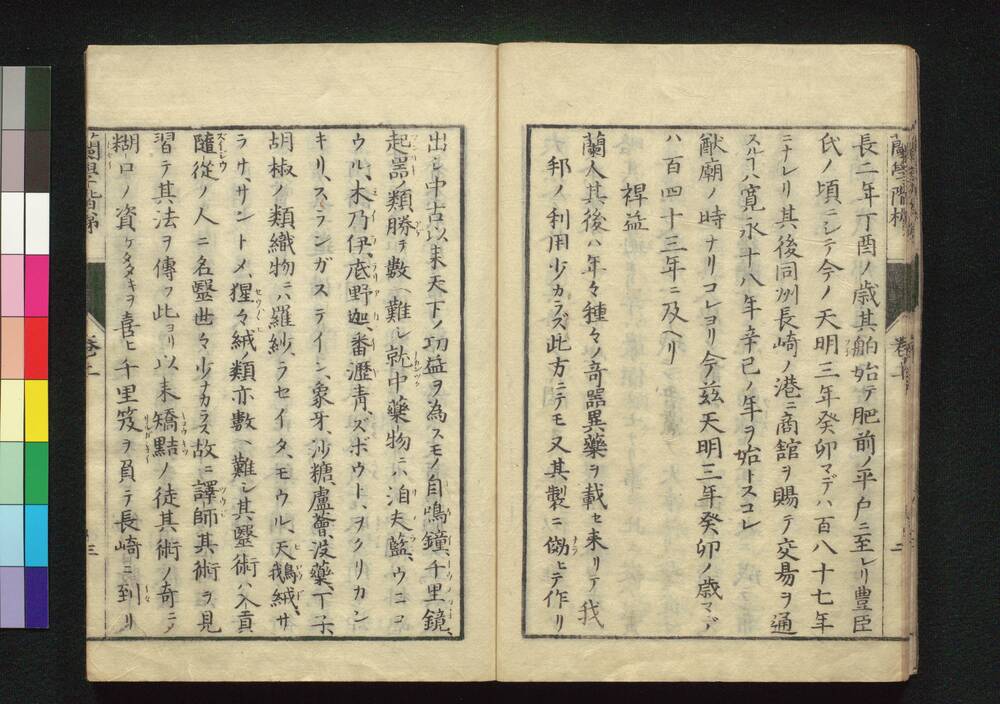 蘭學階梯 卷上 二
長二年丁酉ノ歳其舶始テ肥前ノ平戸ニ至レリ豊臣
氏ノ頃ニシテ今ノ天明三年癸卯マデハ百八十七年
ニナレリ其後同洲長崎ノ港ニ商舘ヲ賜テ交易ヲ通
スルヿハ寛永十八年辛巳ノ年ヲ始トスコレ
猷廟ノ時ナリコレヨリ今茲天明三年癸卯ノ歳マデ
ハ百四十三年ニ及ヘリ
裨益
蘭人其後ハ年々種々ノ奇器異藥ヲ載セ来リテ我
邦ノ利用少カラズ此方ニテモ又其製ニ傚ヒテ作リ
出シ中古以来天下ノ功益ヲ為スモノ自鳴鐘、千里鏡、
起噐ノ類勝テ數ヘ難シ就中藥物ニハ洎夫藍、ウニコ
ウル、木乃伊、底野迦、番瀝青、ズボウト、ヲクリカン
キリ、スランガステイン、象牙、沙糖、盧薈、没藥、丁子
胡椒ノ類織物ニハ羅紗、ラセイタ、モウル、天鵝絨、サ
ラサ、サントメ、猩々絨ノ類亦數ヘ難シ其毉術ハ入貢
隨從ノ人ニ名毉世々少カラス故ニ譯師其術ヲ見
習テ其法ヲ傳フ此ヨリ以来矯黠ノ徒其術ノ奇ニテ
糊口ノ資ケタヤスキヲ喜ヒ千里笈ヲ負テ長崎ニ到リ
蘭學階梯 卷上 三